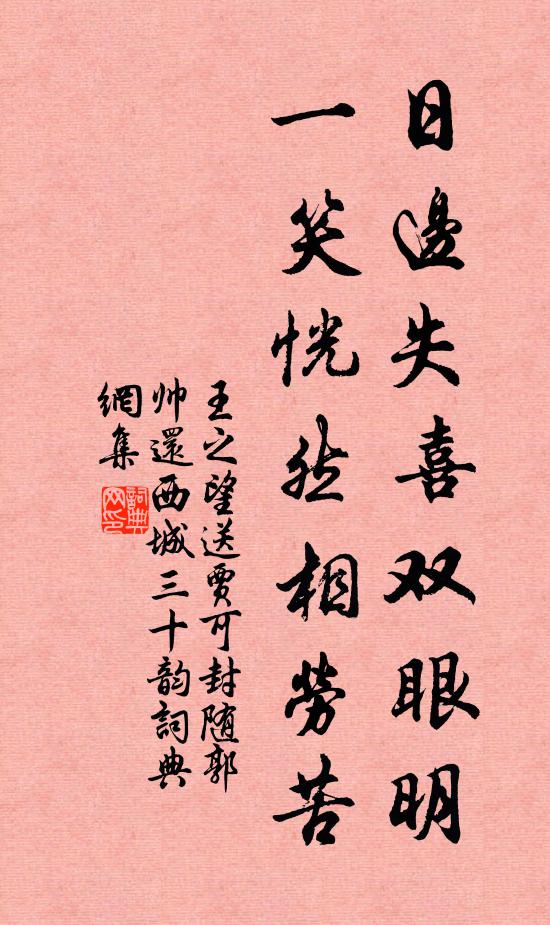 日邊失喜双眼明
一笑恍然相勞苦
王之望送賈可封随郭
帅還西城三十韵詞典
網集
詞典
网印